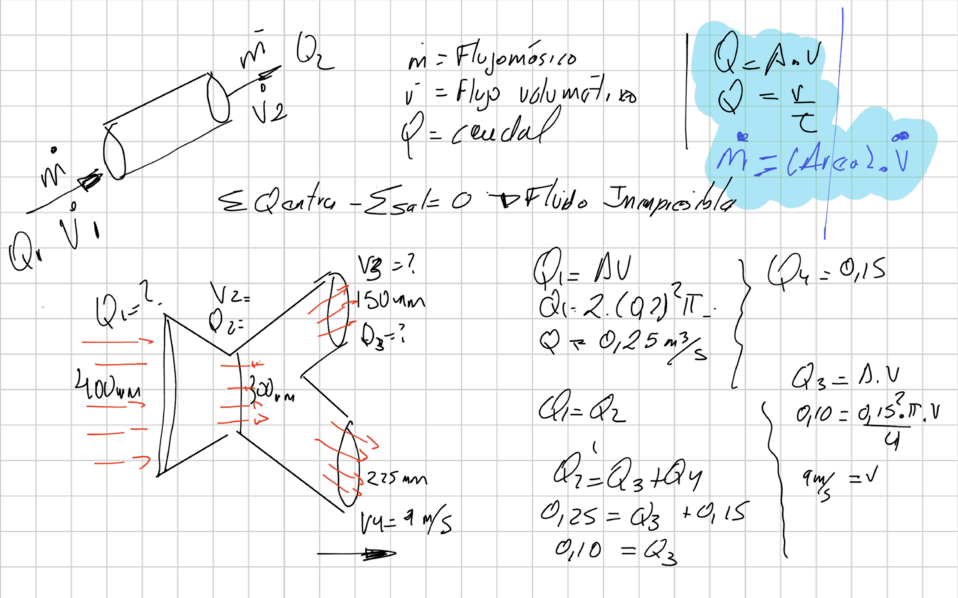 ṁ Q2
V̇2
ṁ
Q1 V̇1
ṁ = Flujo mósico
v̇ = Flujo volumétrico
Q = caudal
Q = A.V
Q = v/t
ṁ = (Area).V̇
Σ Qentra - Σsal = 0 → Fluido Incompresible
Q1=?
V2=
Q2=
400mm
300mm
V3=?
150mm
Q3=?
225mm
V4= m/s
Q1= AV
Q1= 2.(0,2)²π
Q = 0,25 m³/s
Q1=Q2
Q2=Q3+Q4
0,25 = Q3 +0,15
0,10 = Q3
Q4 = 0,15
Q3 = A.V
0,10 = 0,15².π.V/4
m/s = V